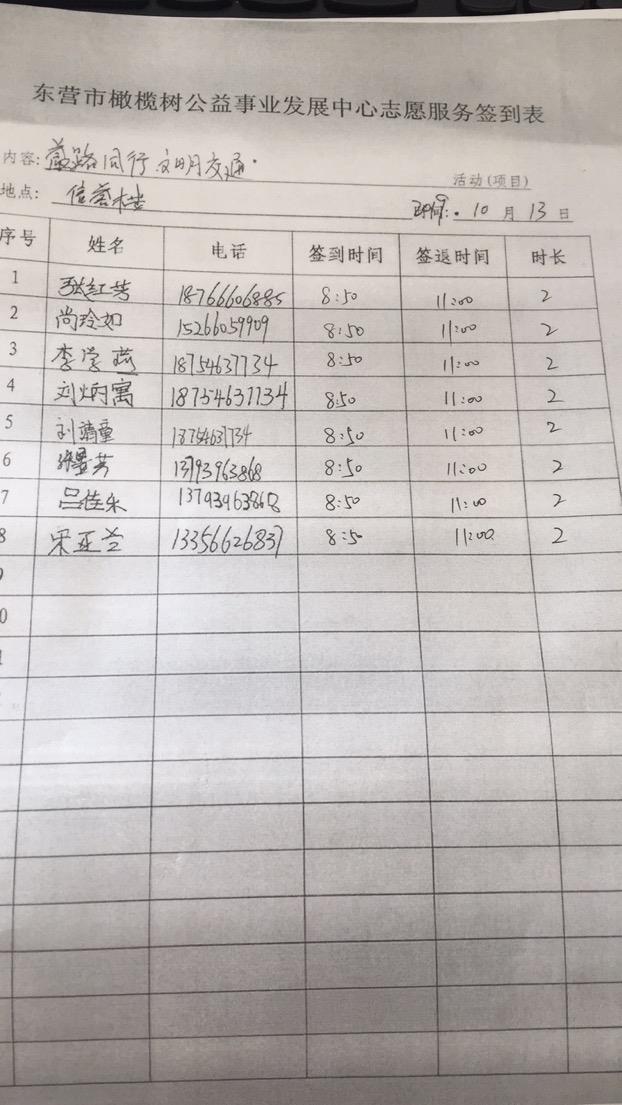 东营市橄榄树公益事业发展中心志愿服务签到表
内容: 路同行 文明交通. 活动(项目)
地点: 信誉楼 时间: 10 月 13 日
序号 姓名 电话 签到时间 签退时间 时长
1 张红芳 18766606885 8:50 11:00 2
2 尚玲如 15266059909 8:50 11:00 2
3 李学燕 18754637734 8:50 11:00 2
4 刘炳寓 18754637734 8:50 11:00 2
5 刘靖童 18754637734 8:50 11:00 2
6 张昱芳 13793963868 8:50 11:00 2
7 吕佳乐 13793963868 8:50 11:00 2
8 宋亚兰 13356626837 8:50 11:00 2
9
0
1